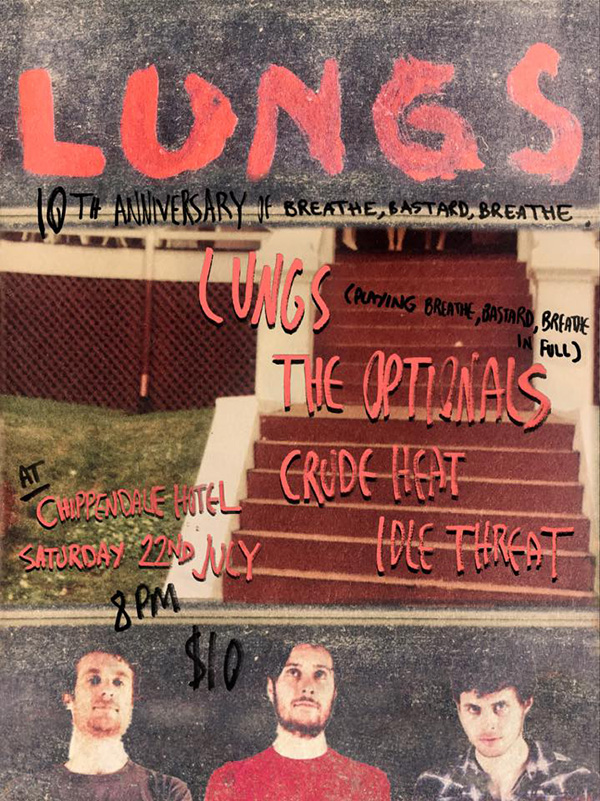 LUNGS
10TH ANNIVERSARY OF BREATHE, BASTARD, BREATHE.
LUNGS (PLAYING BREATHE, BASTARD, BREATHE
IN FULL)
THE OPTIONALS
CRUDE HEAT
IDLE THREAT
AT
CHIPPENDALE HOTEL
SATURDAY 22ND JULY
8PM
$10